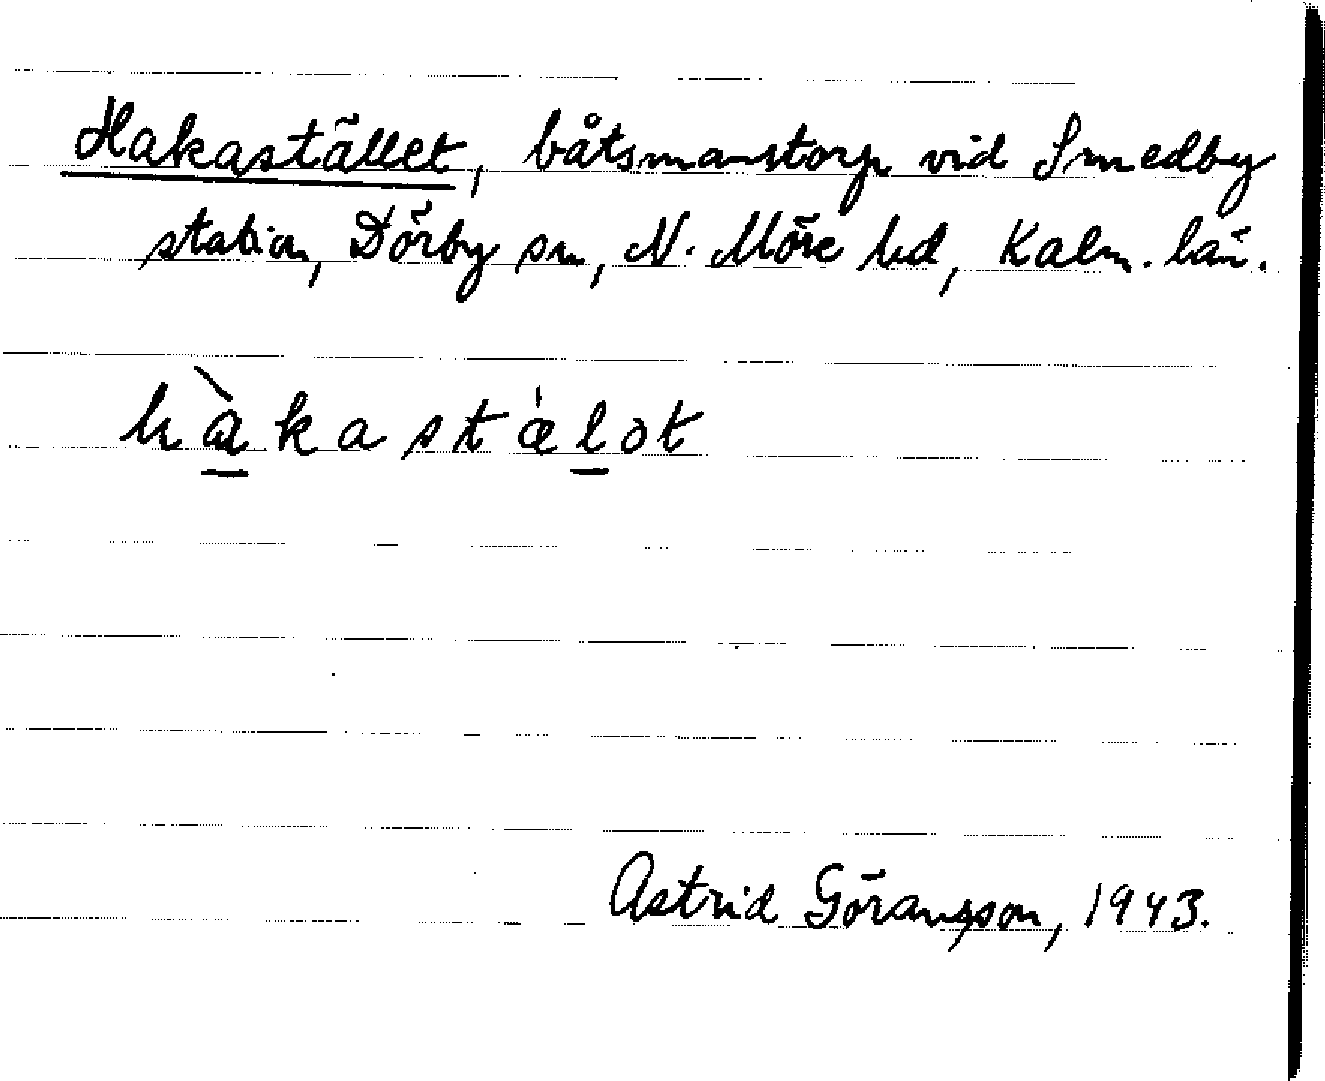 Hakastället, båtsmanstorp vid Smedby
station, Dörby sn, N. Möre hd, Kalm. län.
hàkastæ̍lət
Astrid Göransson, 1943.